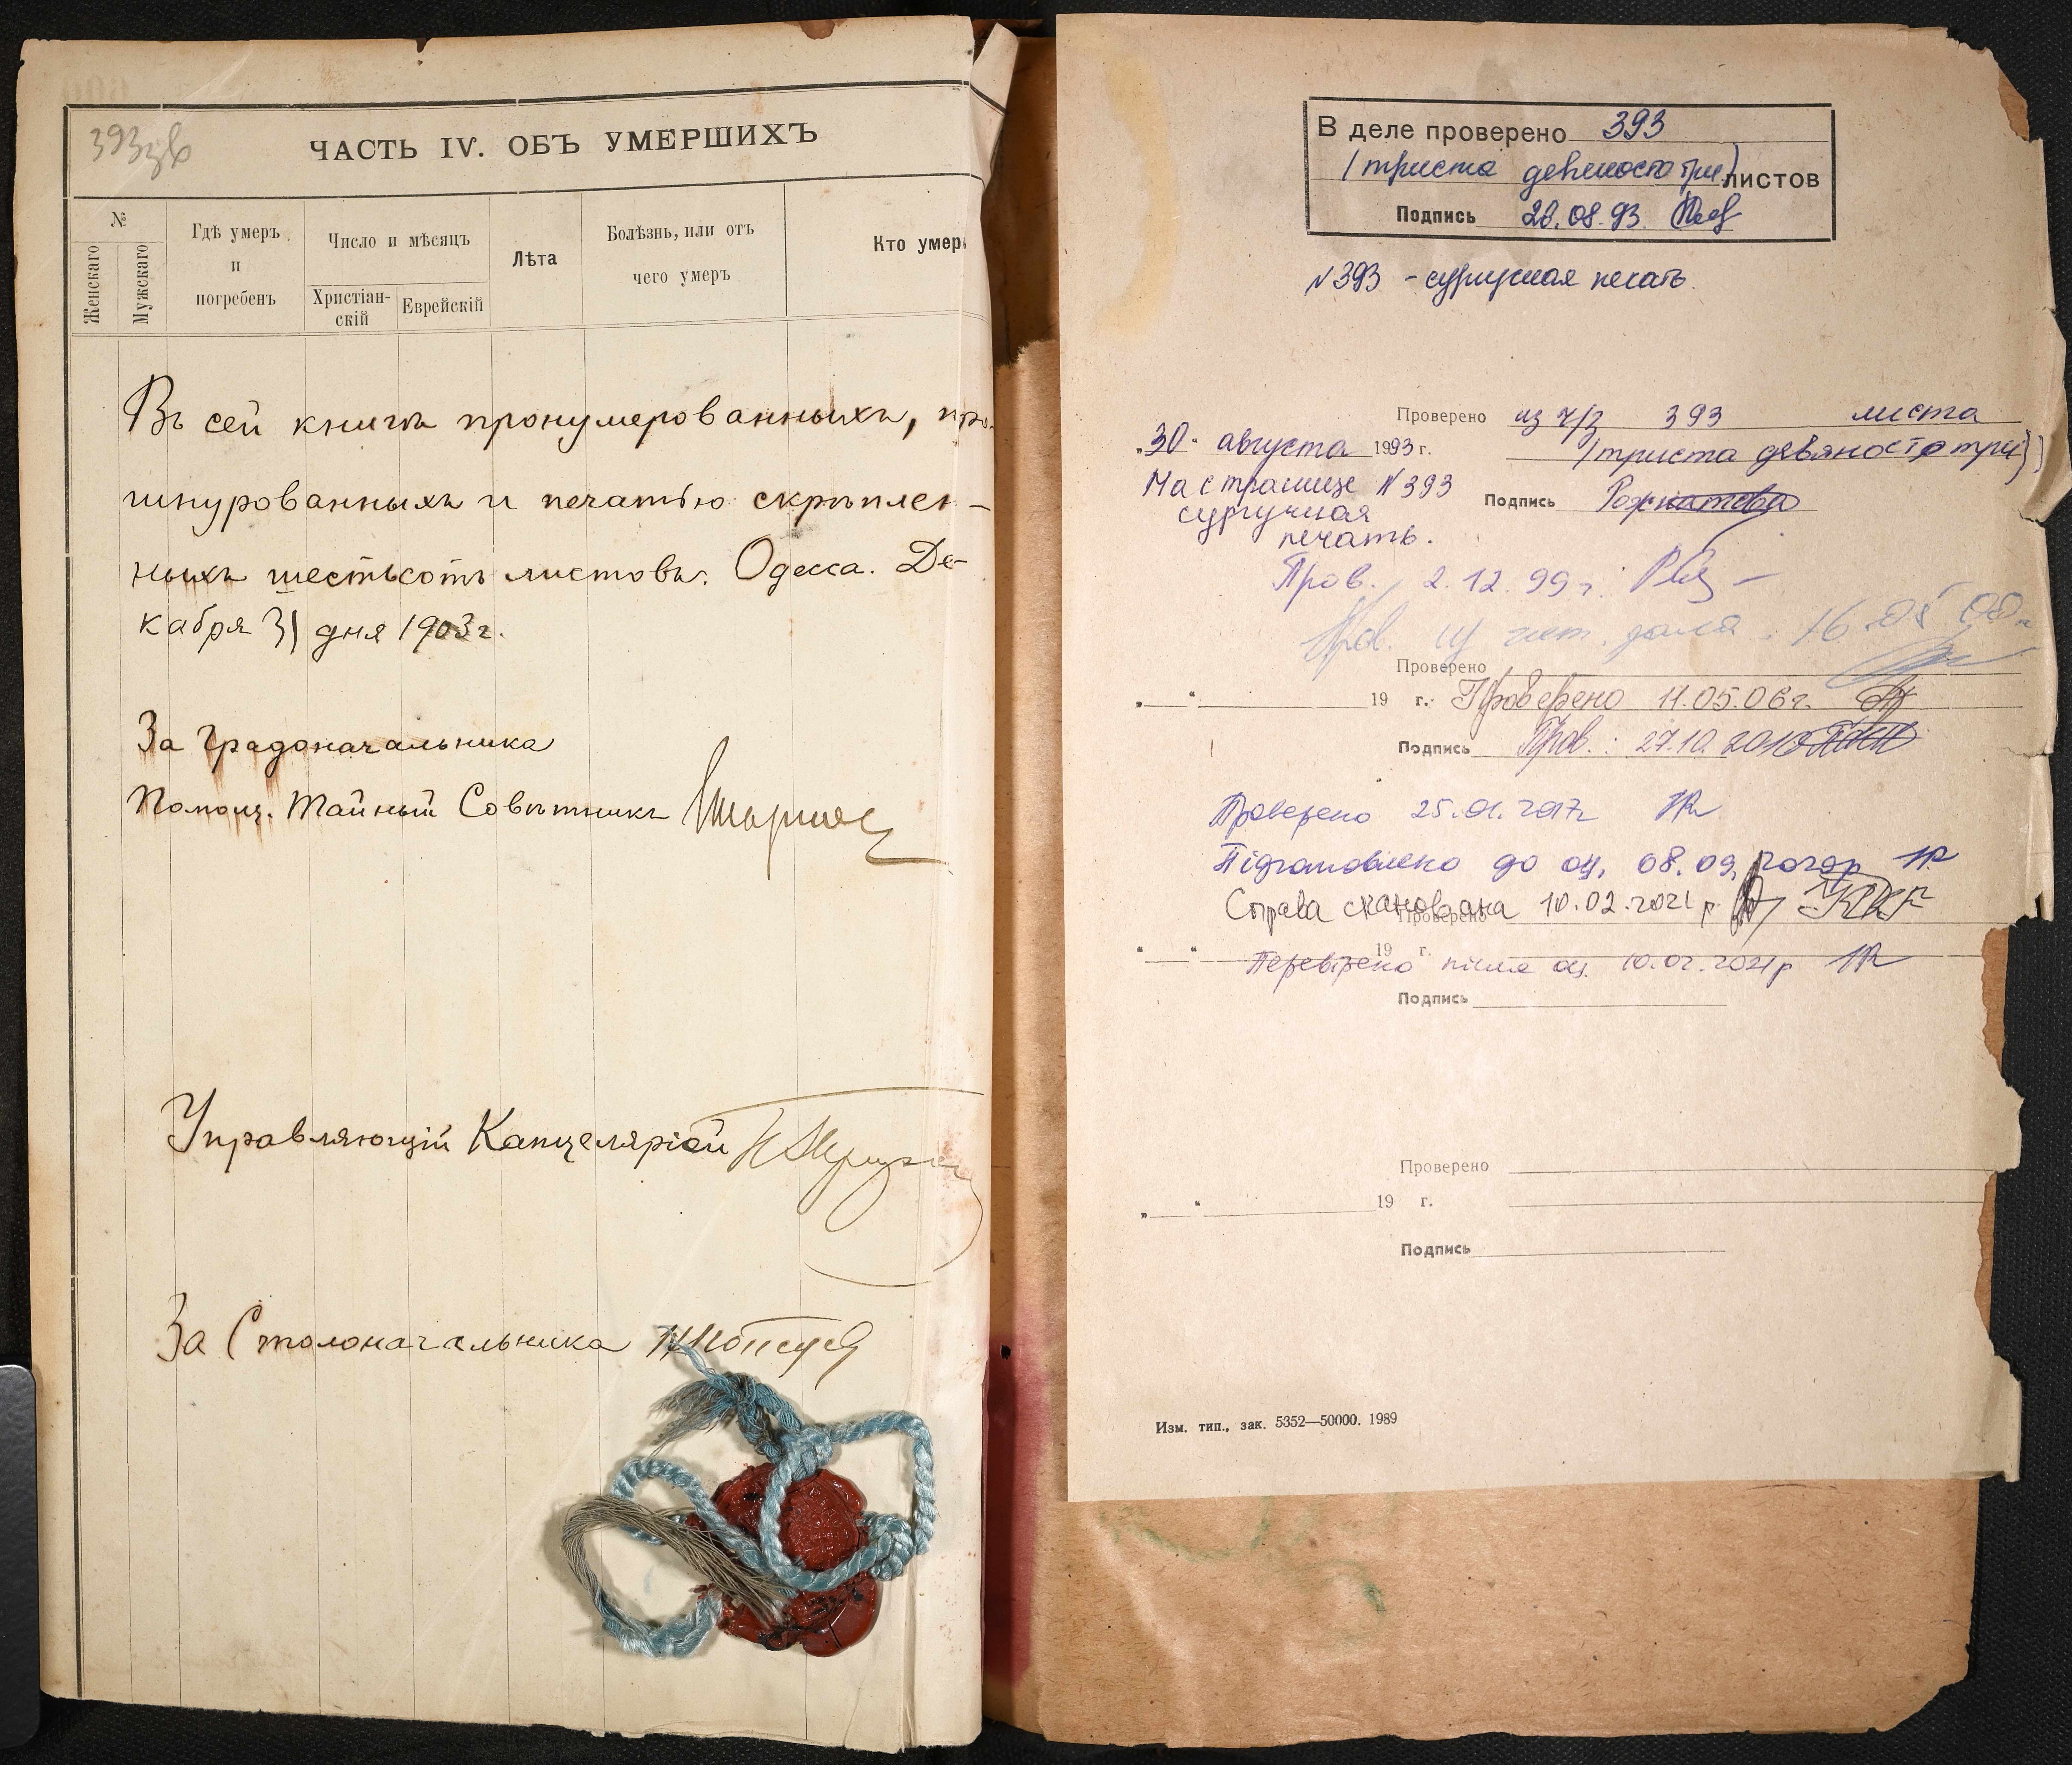 393зв
ЧАСТЬ IV. ОБЪ УМЕРШИХЪ
№
Женскаго
Мужскаго
Гдѣ умеръ
и
погребенъ
Число и мѣсяцъ
Христіан-
скій
Еврейскій
Лѣта
Болѣзнь, или отъ
чего умеръ
Кто умер
Въ сей книгѣ пронумерованныхъ, про-
шнурованныхъ и печатью скрѣплен-
ныхъ шестьсотъ листовъ. Одесса. Де-
кабря 31 дня 1903 г.
За Градоначальника
Помощ. Тайный Совѣтникъ
Управляющій Канцеляріей
За Столоначальника
В деле проверено 393
(триста девяносто три) листов
Подпись 28.08.93
№393 - сургучная печать.
Проверено из ч/з 393 листа
„30“ августа 1993 г. (триста девяносто три)
На странице №393
сургучная
печать.
Подпись
Пров. 2.12.99 г.
Пров. из чит. зала
Проверено
„ “ 19 г. Проверено 11.05.06г.
Подпись Пров.: 27.10.2010
Проверено 25.01.2017г
Підготовлено до оц. 08.09.2020р
Справа сканована 10.02.2021 р.
Проверено
“ “ 19 г.
Перевірено після оц. 10.02.2021р
Подпись
Проверено
„ “ 19 г.
Подпись
Изм. тип., зак. 5352—50000. 1989